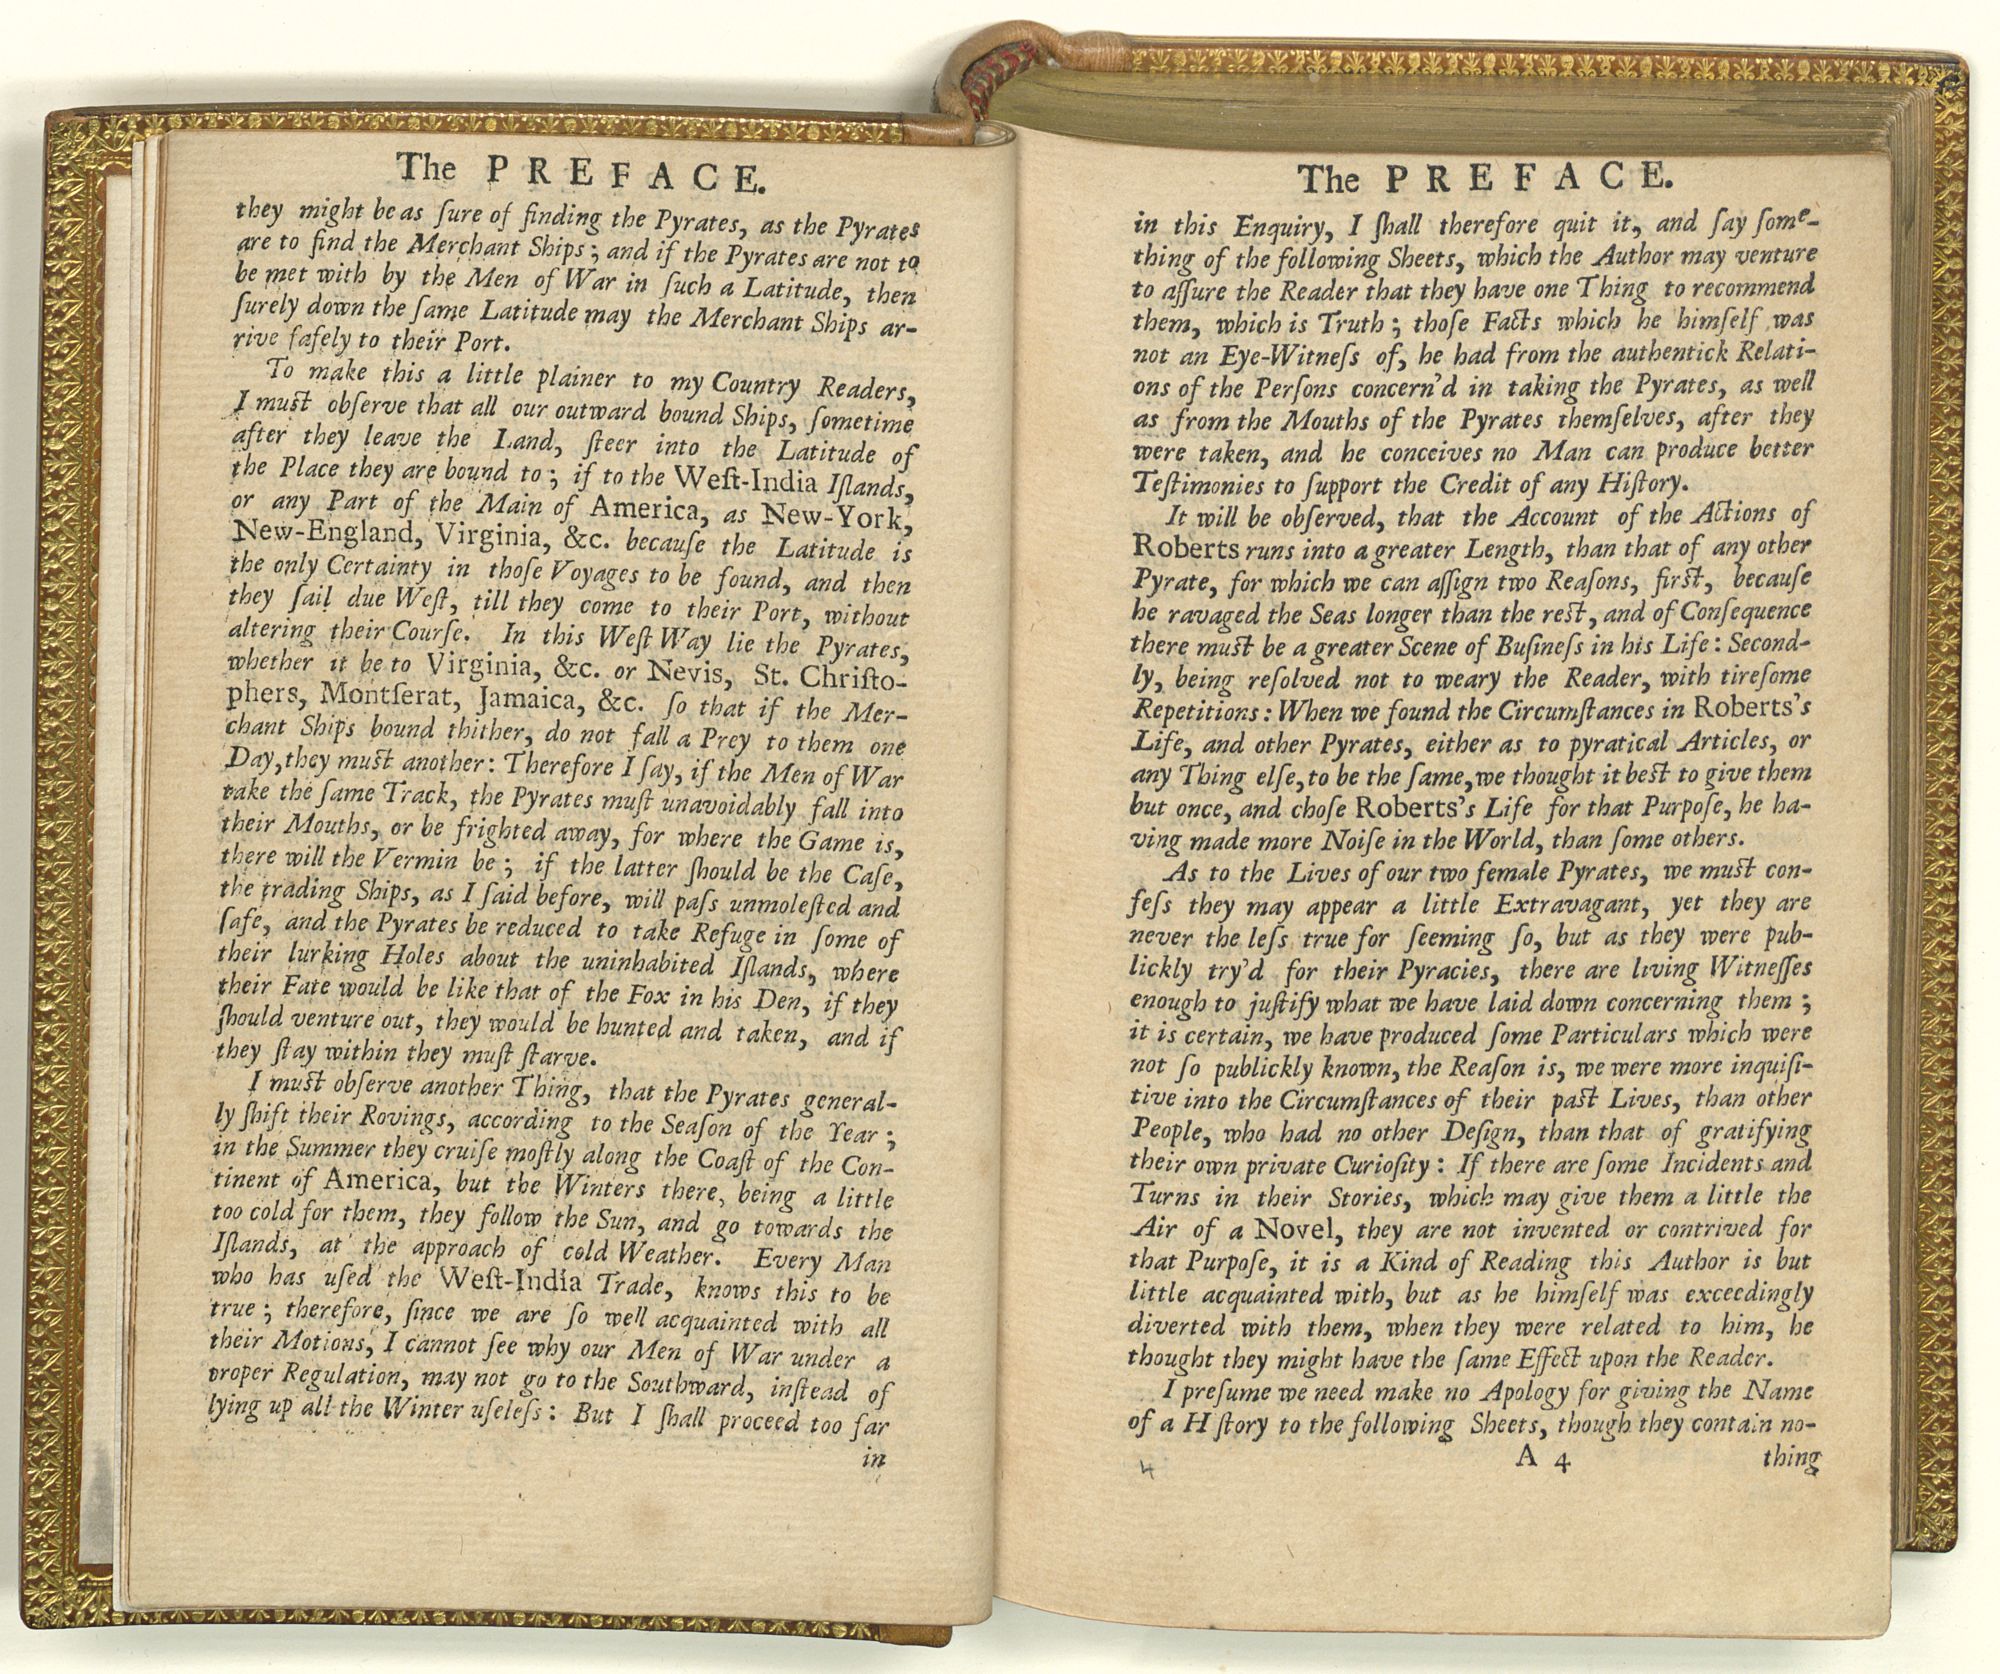 The PREFACE.
they might be as ſure of finding the Pyrates, as the Pyrates
are to find the Merchant Ships; and if the Pyrates are not to
be met with by the Men of War in ſuch a Latitude, then
ſurely down the ſame Latitude may the Merchant Ships ar-
rive ſafely to their Port.
To make this a little plainer to my Country Readers,
I muſt obſerve that all our outward bound Ships, ſometime
after they leave the Land, ſteer into the Latitude of
the Place they are bound to; if to the Weſt-India Iſlands,
or any Part of the Main of America, as New-York,
New-England, Virginia, &c. becauſe the Latitude is
the only Certainty in thoſe Voyages to be found, and then
they ſail due Weſt, till they come to their Port, without
altering their Courſe. In this Weſt Way lie the Pyrates,
whether it be to Virginia, &c. or Nevis, St. Chriſto-
phers, Montſerat, Jamaica, &c. ſo that if the Mer-
chant Ships bound thither, do not fall a Prey to them one
Day, they muſt another: Therefore I ſay, if the Men of War
take the ſame Track, the Pyrates muſt unavoidably fall into
their Mouths, or be frighted away, for where the Game is,
there will the Vermin be; if the latter ſhould be the Caſe,
the trading Ships, as I ſaid before, will paſs unmoleſted and
ſafe, and the Pyrates be reduced to take Refuge in ſome of
their lurking Holes about the uninhabited Iſlands, where
their Fate would be like that of the Fox in his Den, if they
ſhould venture out, they would be hunted and taken, and if
they ſtay within they muſt ſtarve.
I muſt obſerve another Thing, that the Pyrates general-
ly ſhift their Rovings, according to the Seaſon of the Year;
in the Summer they cruiſe moſtly along the Coaſt of the Con-
tinent of America, but the Winters there, being a little
too cold for them, they follow the Sun, and go towards the
Iſlands, at the approach of cold Weather. Every Man
who has uſed the Weſt-India Trade, knows this to be
true; therefore, ſince we are ſo well acquainted with all
their Motions, I cannot ſee why our Men of War under a
proper Regulation, may not go to the Southward, inſtead of
lying up all the Winter uſeleſs: But I ſhall proceed too far
in
The PREFACE.
in this Enquiry, I ſhall therefore quit it, and ſay ſome-
thing of the following Sheets, which the Author may venture
to aſſure the Reader that they have one Thing to recommend
them, which is Truth; thoſe Facts which he himſelf was
not an Eye-Witneſs of, he had from the authentick Relati-
ons of the Perſons concern'd in taking the Pyrates, as well
as from the Mouths of the Pyrates themſelves, after they
were taken, and he conceives no Man can produce better
Teſtimonies to ſupport the Credit of any Hiſtory.
It will be obſerved, that the Account of the Actions of
Roberts runs into a greater Length, than that of any other
Pyrate, for which we can aſſign two Reaſons, firſt, becauſe
he ravaged the Seas longer than the reſt, and of Conſequence
there muſt be a greater Scene of Buſineſs in his Life: Second-
ly, being reſolved not to weary the Reader, with tireſome
Repetitions: When we found the Circumſtances in Roberts's
Life, and other Pyrates, either as to pyratical Articles, or
any Thing elſe, to be the ſame, we thought it beſt to give them
but once, and choſe Roberts's Life for that Purpoſe, he ha-
ving made more Noiſe in the World, than ſome others.
As to the Lives of our two female Pyrates, we muſt con-
feſs they may appear a little Extravagant, yet they are
never the leſs true for ſeeming ſo, but as they were pub-
lickly try'd for their Pyracies, there are living Witneſſes
enough to juſtify what we have laid down concerning them;
it is certain, we have produced ſome Particulars which were
not ſo publickly known, the Reaſon is, we were more inquiſi-
tive into the Circumſtances of their paſt Lives, than other
People, who had no other Deſign, than that of gratifying
their own private Curioſity: If there are ſome Incidents and
Turns in their Stories, which may give them a little the
Air of a Novel, they are not invented or contrived for
that Purpoſe, it is a Kind of Reading this Author is but
little acquainted with, but as he himſelf was exceedingly
diverted with them, when they were related to him, he
thought they might have the ſame Effect upon the Reader.
I preſume we need make no Apology for giving the Name
of a H ſtory to the following Sheets, though they contain no-
4 A 4 thing